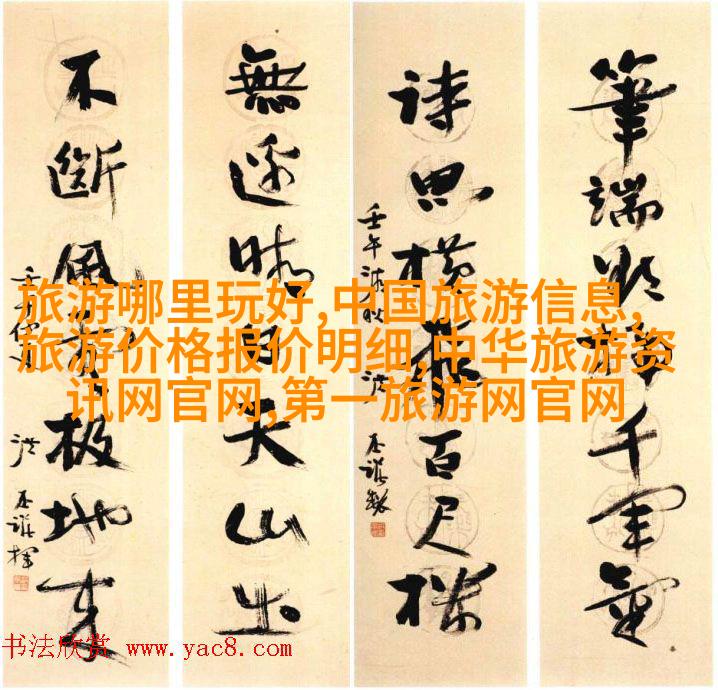 筆端千軍氣
詩思橫百尺樓
壬午 洪丕謨
無邊晴天山出
不斷風極地来
洪丕謨揮
旅游哪里玩好,中国旅游信息,
旅游价格报价明细,中华旅游资
讯网官网,第一旅游网官网
书法欣赏 www.yac8.com